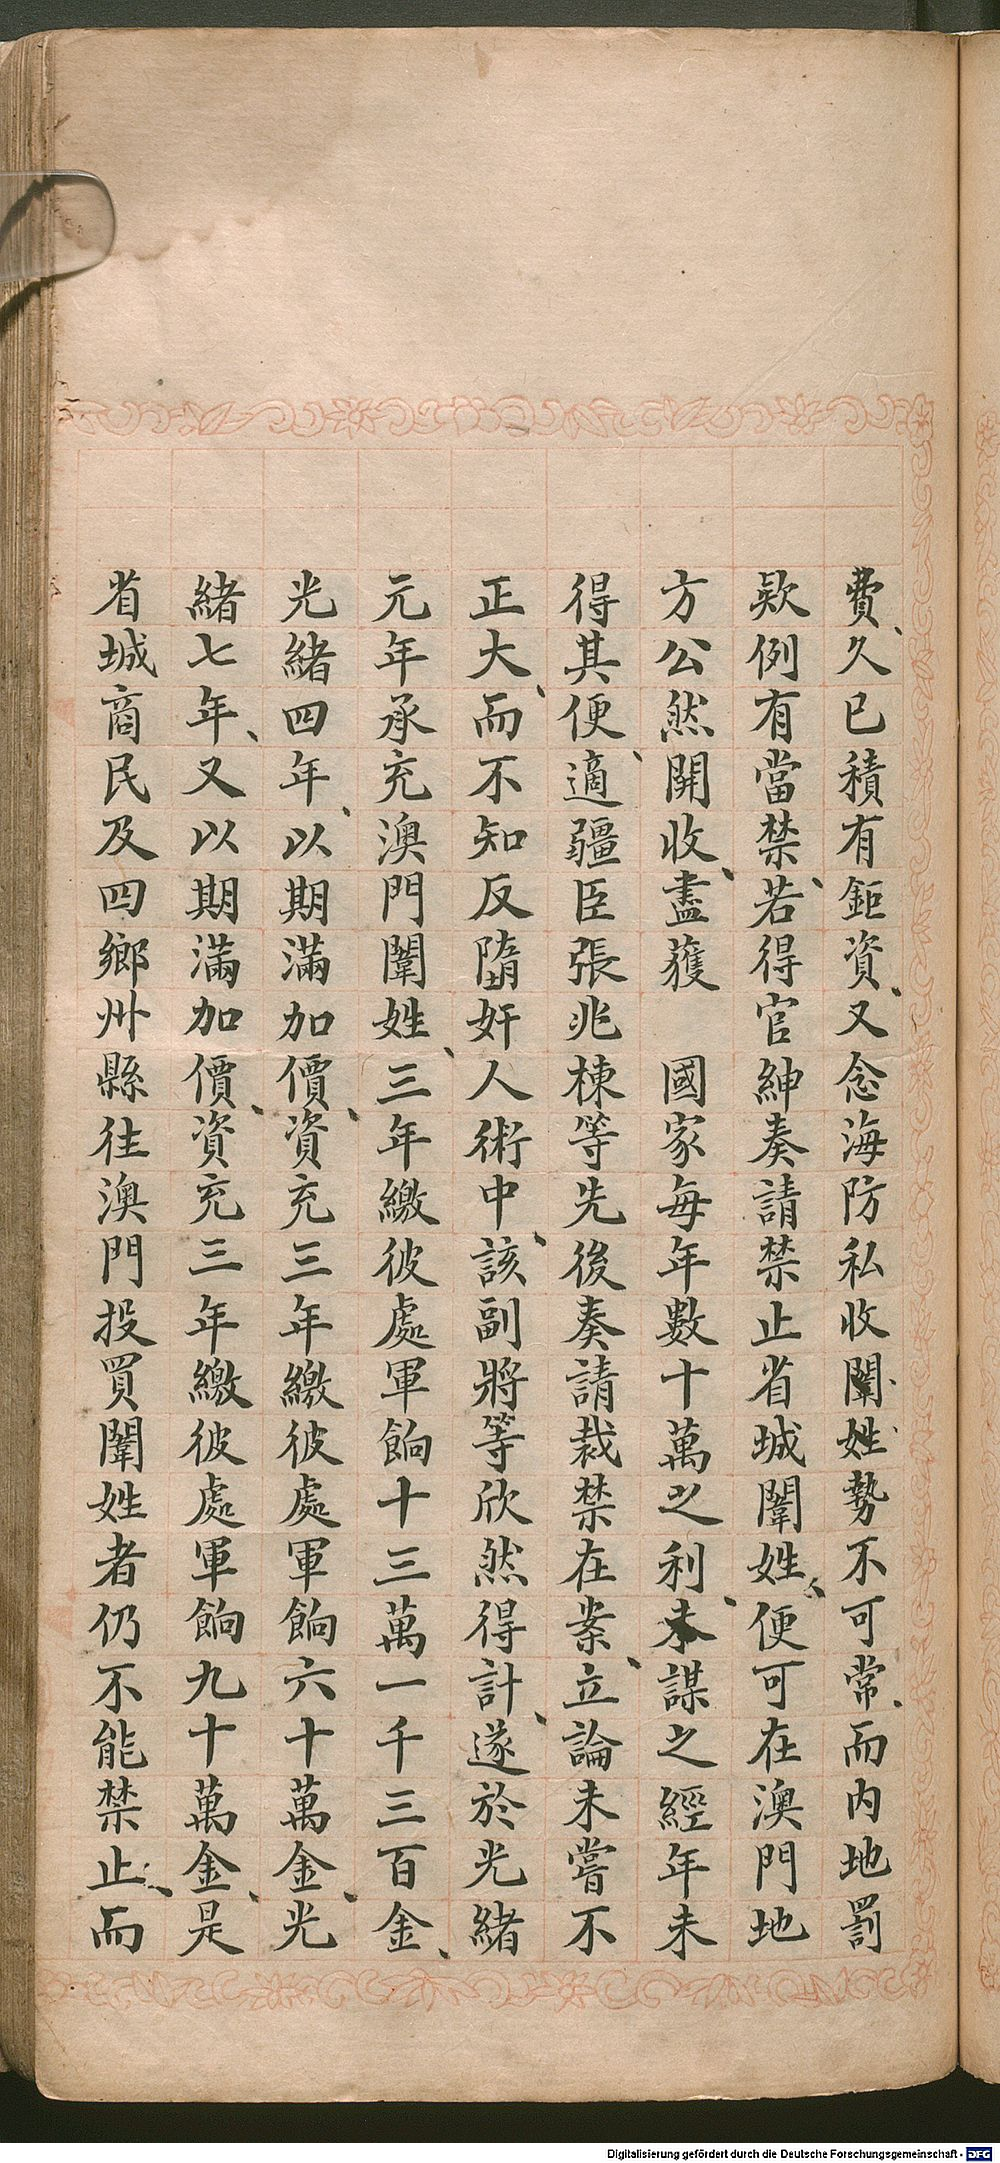 費、久已積有鉅資、又念海防私收闈姓、勢不可常、而內地罰
欵例有當禁、若得官紳奏請禁止省城闈姓、便可在澳門地
方公然開收、盡獲　國家每年數十萬之利、本謀之經年未
得其便、適疆臣張兆棟等先後奏請裁禁在案、立論未嘗不
正大、而不知反墮奸人術中、該副將等欣然得計、遂於光緒
元年承充澳門闈姓、三年繳彼處軍餉十三萬一千三百金、
光緒四年、以期滿加價、資充三年繳彼處軍餉六十萬金、光
緒七年、又以期滿加價、資充三年繳彼處軍餉九十萬金、是
省城商民及四鄉州縣往澳門投買闈姓者仍不能禁止、而
Digitalisierung gefördert durch die Deutsche Forschungsgemeinschaft - DFG